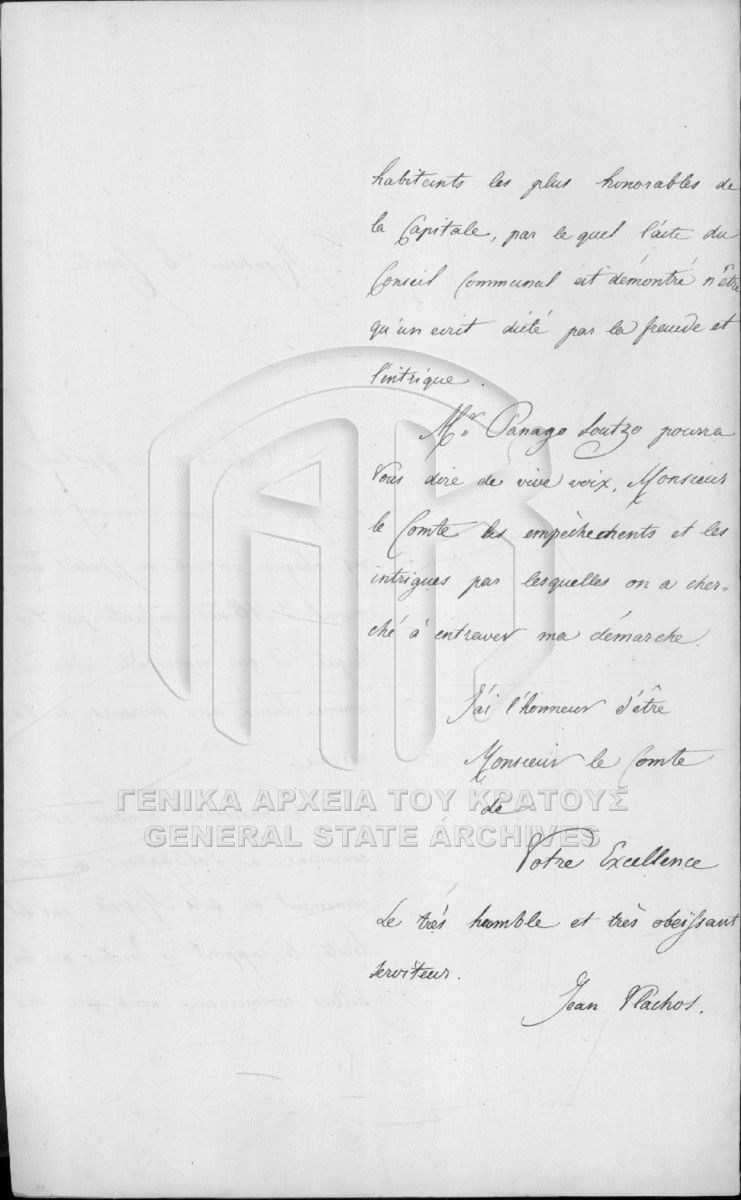 habitants les plus honorables de
la Capitale, par le quel l'acte du
Conseil Communal est démontré n'être
qu'un ecrit dicté par la fraude et
l'intrique.
Mr. Panago Soutzo pourra
Vous dire de vive voix, Monsieur
le Comte les empêchements et les
intrigues par lesquelles on a cher-
ché à entraver ma démarche.
J'ai l'honneur d'être
Monsieur le Comte
de
Votre Excellence
Le très humble et très obeissant
serviteur.
Jean Vlachos.
ΓΕΝΙΚΑ ΑΡΧΕΙΑ ΤΟΥ ΚΡΑΤΟΥΣ
GENERAL STATE ARCHIVES